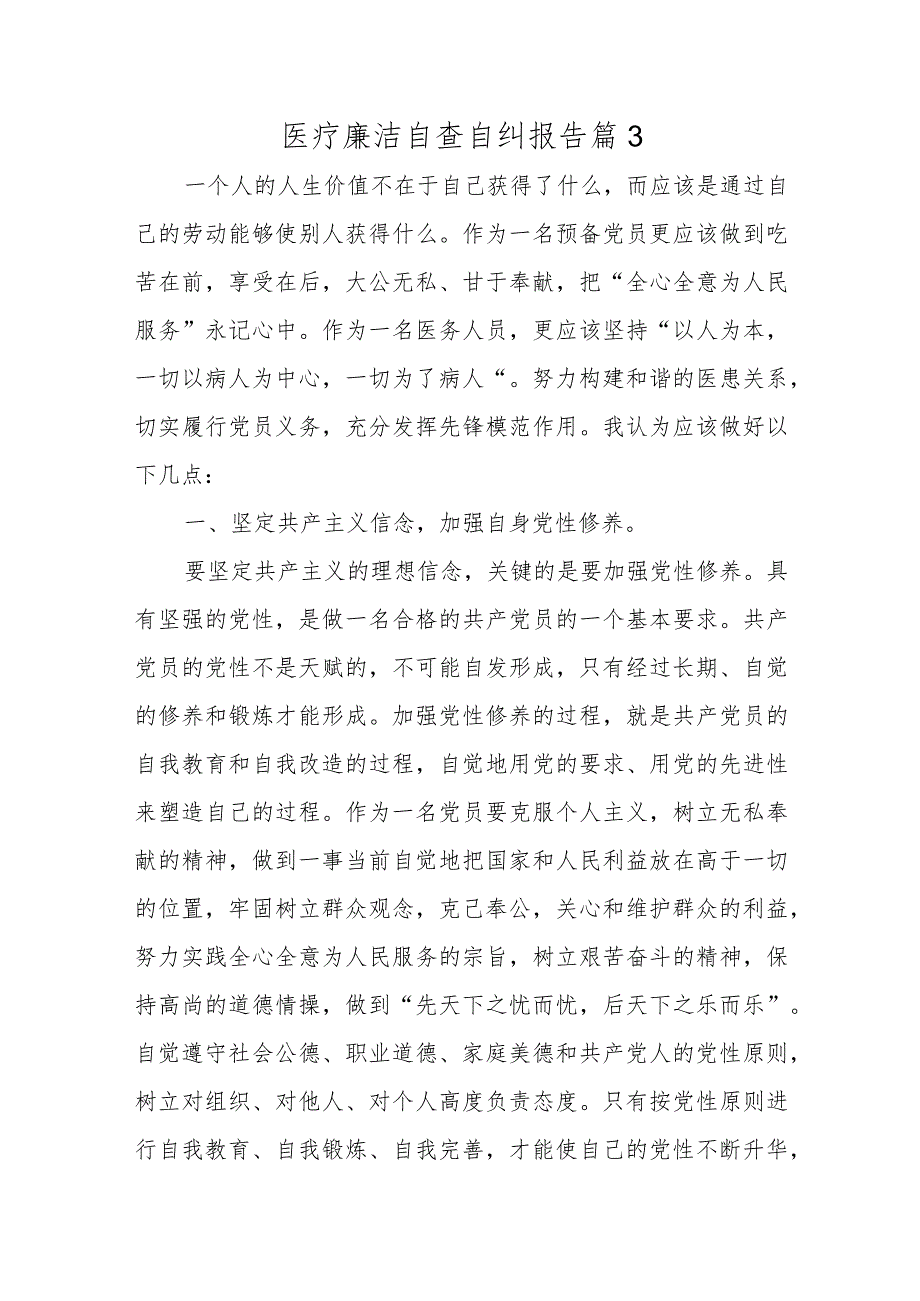 医疗廉洁自查自纠报告篇3
一个人的人生价值不在于自己获得了什么，而应该是通过自
己的劳动能够使别人获得什么。作为一名预备党员更应该做到吃
苦在前，享受在后，大公无私、甘于奉献，把“全心全意为人民
服务”永记心中。作为一名医务人员，更应该坚持“以人为本，
一切以病人为中心，一切为了病人“。努力构建和谐的医患关系，
切实履行党员义务，充分发挥先锋模范作用。我认为应该做好以
下几点：
一、坚定共产主义信念，加强自身党性修养。
要坚定共产主义的理想信念，关键的是要加强党性修养。具
有坚强的党性，是做一名合格的共产党员的一个基本要求。共产
党员的党性不是天赋的，不可能自发形成，只有经过长期、自觉
的修养和锻炼才能形成。加强党性修养的过程，就是共产党员的
自我教育和自我改造的过程，自觉地用党的要求、用党的先进性
来塑造自己的过程。作为一名党员要克服个人主义，树立无私奉
献的精神，做到一事当前自觉地把国家和人民利益放在高于一切
的位置，牢固树立群众观念，克己奉公，关心和维护群众的利益，
努力实践全心全意为人民服务的宗旨，树立艰苦奋斗的精神，保
持高尚的道德情操，做到“先天下之忧而忧，后天下之乐而乐”。
自觉遵守社会公德、职业道德、家庭美德和共产党人的党性原则，
树立对组织、对他人、对个人高度负责态度。只有按党性原则进
行自我教育、自我锻炼、自我完善，才能使自己的党性不断升华，